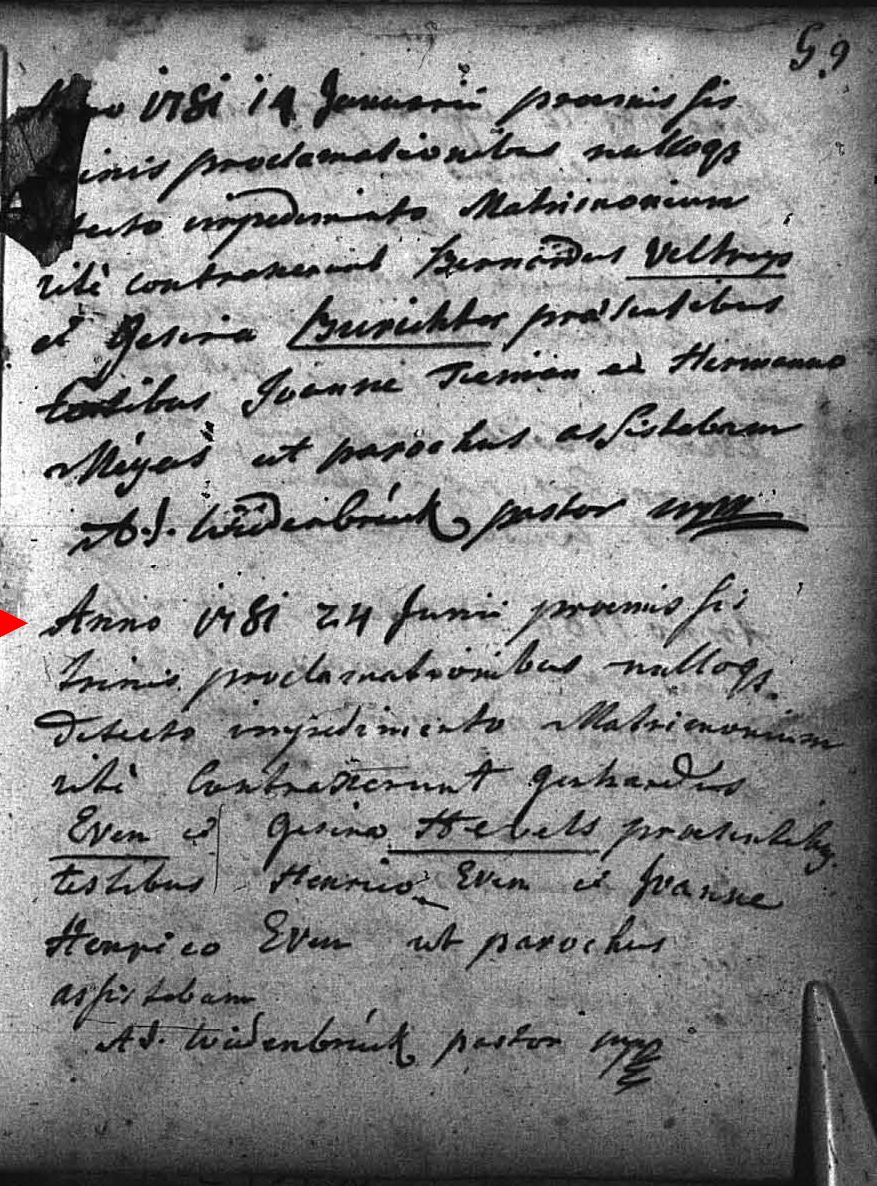 59
Anno 1781 14 Januarii praemissis
trinis proclamationibus nulloqs
detecto impedimento Matrimonium
ritè contraxerunt Bernardus Veltrup
et Gesina Burichter praesentibus
testibus Joanne Tieman et Hermanno
Meyer ut parochus assistebam
A.J. Widenbrück pastor mpp
Anno 1781 24 Junii praemissis
trinis proclamationibus nulloqs
detecto impedimento Matrimonium
ritè contraxerunt gerhardus
Even et Gesina Hebels praesentibus
testibus Henrico Even et Joanne
Henrico Even ut parochus
assistebam
A J. Widenbrück pastor mpp